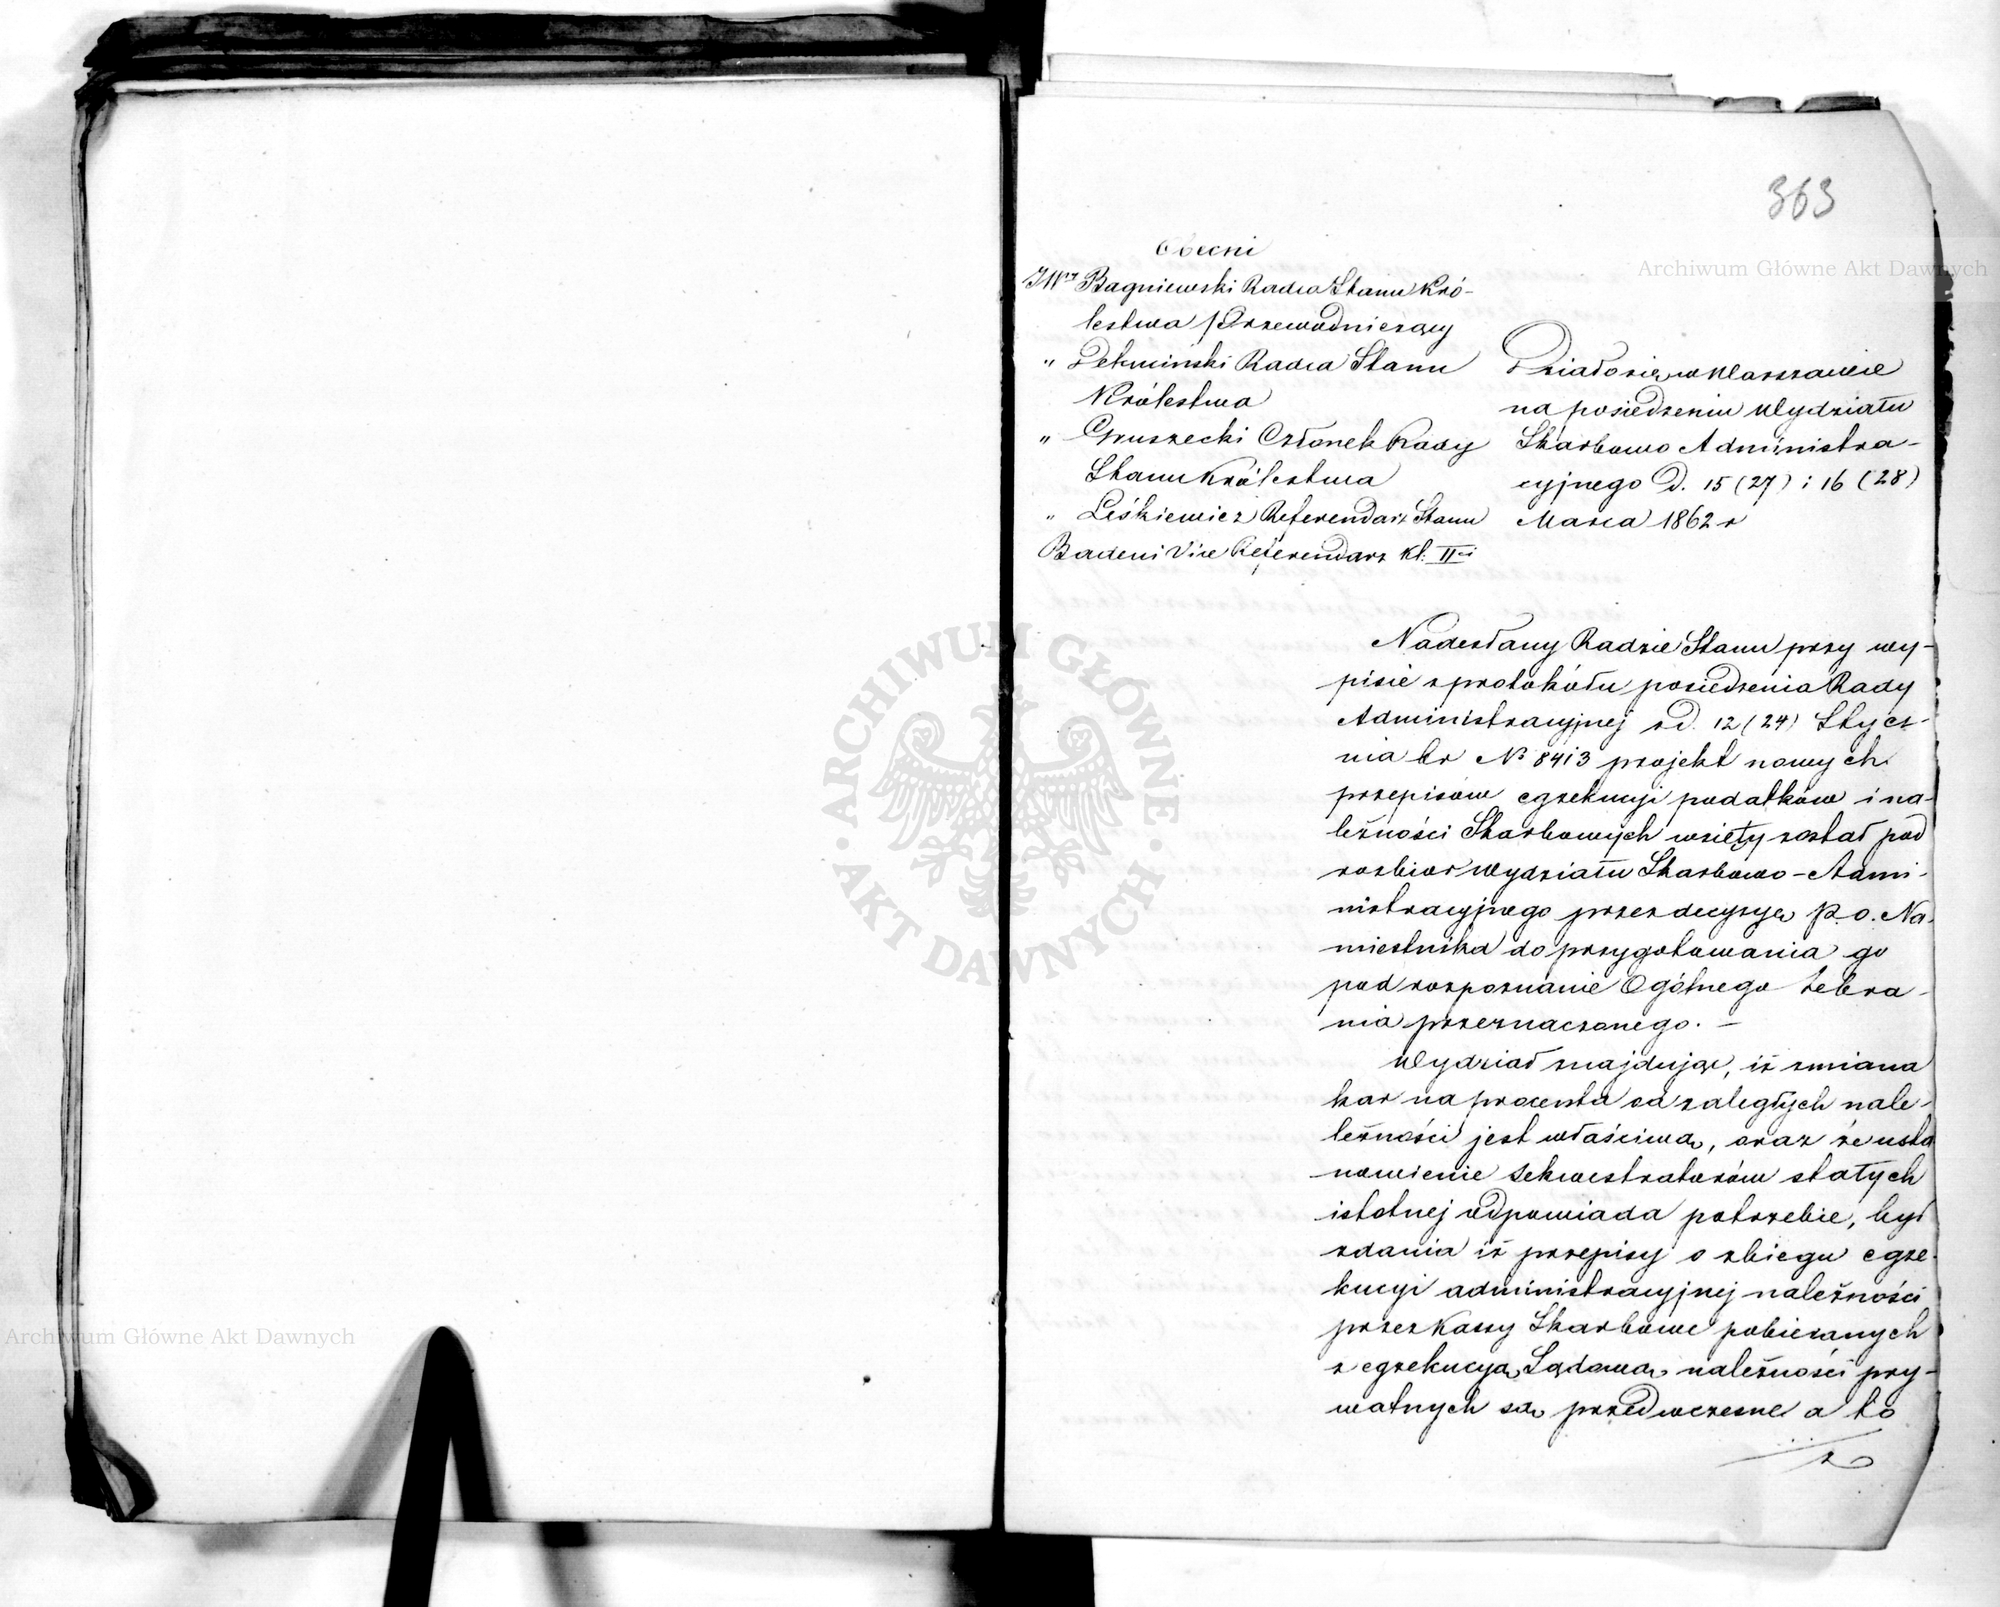 363
Obecni
JW<sup>ny</sup> Bagniewski Radca Stanu Kró-
lestwa Przewodniczący
" Radca Stanu
Królestwa
" Gruszecki Członek Rady
Stanu Królestwa
" Leśkiewicz Referendarz Stanu
Badeni Vice Referendarz kl: II<sup>ei</sup>
Działo się w Warszawie
na posiedzeniu Wydziału
Skarbowo Administra-
cyjnego d. 15 (27) i 16 (28)
Marca 1862 r
Nadesłany Radzie Stanu przy wy-
pisie z protokółu posiedzenia Rady
Administracyjnej z d. 12 (24) Stycz-
nia br № 8413 projekt nowych
przepisów egzekucyi podatków i na-
leżności Skarbowych wzięty został pod
rozbiór Wydziału Skarbowo-Admi-
nistracyjnego przez decyzyą P. o. Na-
miestnika do przygotowania go
pod rozpoznanie Ogólnego Zebra-
nia przeznaczonego. –
Wydział znajdując, iż zmiana
kar na procenta od zaległych nale-
leżności jest właściwą, oraz że usta
nowienie sekwestratorów stałych
istotnej odpowiada potrzebie, był
zdania iż przepisy o zbiegu egze-
kucyi administracyjnej należności
przez Kassy Skarbowe pobieranych
z egzekucyą Sądową należności pry-
watnych są przedwczesne a to
z
Archiwum Główne Akt Dawnych
ARCHIWUM GŁÓWNE · AKT DAWNYCH ·
Archiwum Główne Akt Dawnych